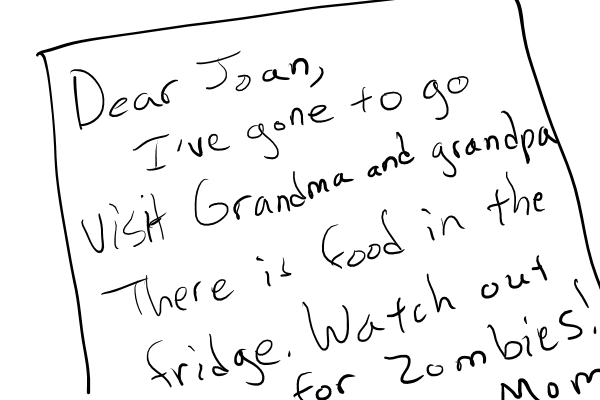 Dear Joan,
I've gone to go
visit Grandma and grandpa
There is food in the
fridge. Watch out
for Zombies!
Mom